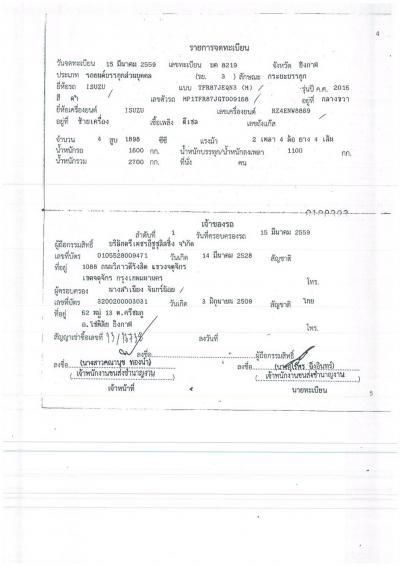 4
รายการจดทะเบียน
วันจดทะเบียน 15 มีนาคม 2559 เลขทะเบียน บค 8219 จังหวัด พังงา
ประเภท รถยนต์บรรทุกส่วนบุคคล (รย. 3 ) ลักษณะ กระบะบรรทุก
ยี่ห้อรถ ISUZU แบบ TFR87JEQN3 (M) รุ่นปี ค.ศ. 2015
สี ดำ เลขตัวรถ MP1TFR87JGT009168 อยู่ที่ กลางขวา
ยี่ห้อเครื่องยนต์ ISUZU เลขเครื่องยนต์ RZ4ENW8869
อยู่ที่ ซ้ายเครื่อง เชื้อเพลิง ดีเซล เลขถังแก๊ส
จำนวน 4 สูบ 1898 ซีซี แรงม้า 2 เพลา 4 ล้อ ยาง 4 เส้น
น้ำหนักรถ 1600 กก. น้ำหนักบรรทุก/น้ำหนักลงเพลา 1100 กก.
น้ำหนักรวม 2700 กก. ที่นั่ง คน
เจ้าของรถ
ลำดับที่ 1 วันที่ครอบครองรถ 15 มีนาคม 2559
ผู้ถือกรรมสิทธิ์ บริษัทตรีเพชรอีซูซุลิสซิ่ง จำกัด
เลขที่บัตร 0105528009471 วันเกิด 14 มีนาคม 2528 สัญชาติ
ที่อยู่ 1088 ถนนวิภาวดีรังสิต แขวงจตุจักร
เขตจตุจักร กรุงเทพมหานคร โทร.
ผู้ครอบครอง
เลขที่บัตร 3200200003031 วันเกิด 3 มิถุนายน 2509 สัญชาติ ไทย
ที่อยู่ 62 หมู่ 13 ต.
โทร.
สัญญาเช่าซื้อเลขที่ ลงวันที่
ลงชื่อ ผู้ถือกรรมสิทธิ์
ลงชื่อ ลงชื่อ
( เจ้าพนักงานขนส่งชำนาญงาน ) ( เจ้าพนักงานขนส่งชำนาญงาน )
เจ้าหน้าที่ นายทะเบียน
5